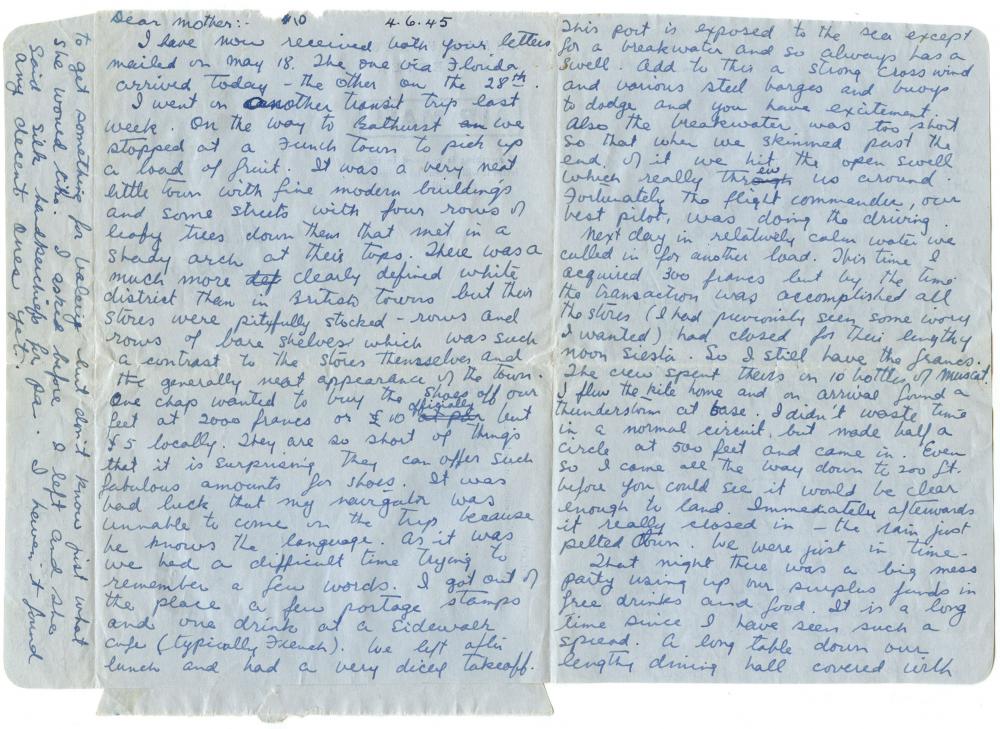 Dear mother:- #10 4.6.45
I have now received both your letters
mailed on May 18. The one via Florida
arrived today - the other on the 28th.
I went on another transit trip last
week. On the way to Bathurst we
stopped at a French town to pick up
a load of fruit. It was a very neat
little town with fine modern buildings
and some streets with four rows of
leafy trees down them that met in a
shady arch at their tops. There was a
much more clearly defined white
district than in British towns but their
stores were pityfully stocked - rows and
rows of bare shelves which was such
a contrast to the stores themselves and
the generally neat appearance of the town.
One chap wanted to buy the shoes off our
feet at 2000 francs or £10 officially but
£5 locally. They are so short of things
that it is surprising they can offer such
fabulous amounts for shoes. It was
bad luck that my navigator was
unnable to come on the trip because
he knows the language. As it was
we had a difficult time trying to
remember a few words. I got out of
the place a few portage stamps
and one drink at a sidewalk
cafe (typically French). We left after
lunch and had a very dicey takeoff.
This port is exposed to the sea except
for a breakwater and so always has a
swell. Add to this a strong cross wind
and various steel barges and buoys
to dodge and you have excitement.
Also the breakwater was too short
so that when we skimmed past the
end of it we hit the open swell
which really threw us around.
Fortunately the flight commander, our
best pilot, was doing the driving.
Next day in relatively calm water we
called in for another load. This time I
acquired 300 francs but by the time
the transaction was accomplished all
the stores (I had previously seen some ivory
I wanted) had closed for their lengthy
noon siesta. So I still have the francs.
The crew spent theirs on 10 bottles of muscat.
I flew the kite home and on arrival found a
thunderstorm at base. I didn't waste time
in a normal circuit, but made half a
circle at 500 feet and came in. Even
so I came all the way down to 200 ft.
before you could see it would be clear
enough to land. Immediately afterwards
it really closed in - the rain just
pelted down. We were just in time.
That night there was a big mess
party using up our surplus funds in
free drinks and food. It is a long
time since I have seen such a
spread. A long table down our
lengthy dining hall covered with
to get something for but don't know just what
she would like. I asked before I left and she
said silk handkerchiefs for Pba. I haven't found
any decent ones yet.